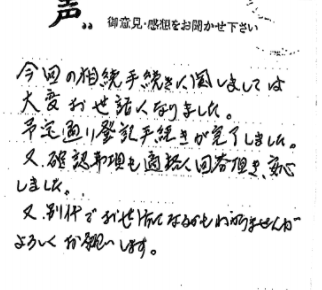 声
御意見・感想をお聞かせ下さい
今回の相続手続きに関しましては
大変お世話になりました。
予定通り登記手続きが完了しました。
又、確認事項も適切に回答頂き、安心
しました。
又、別件でお世話になるかもわかりませんが
よろしくお願いします。